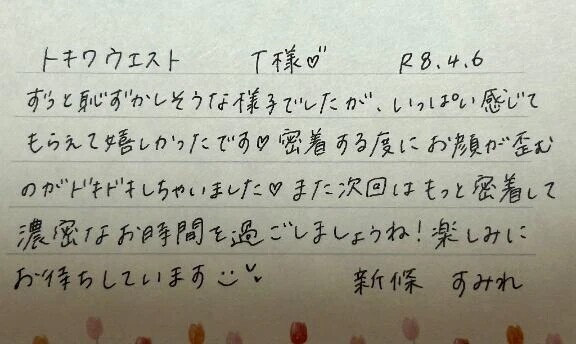 トキワウエスト T様♡ R8.4.6
ずっと恥ずかしそうな様子でしたが、いっぱい感じて
もらえて嬉しかったです♡ 密着する度にお顔が歪む
のがドキドキしちゃいました♡ また次回はもっと密着して
濃密なお時間を過ごしましょうね！楽しみに
お待ちしています 新條 すみれ